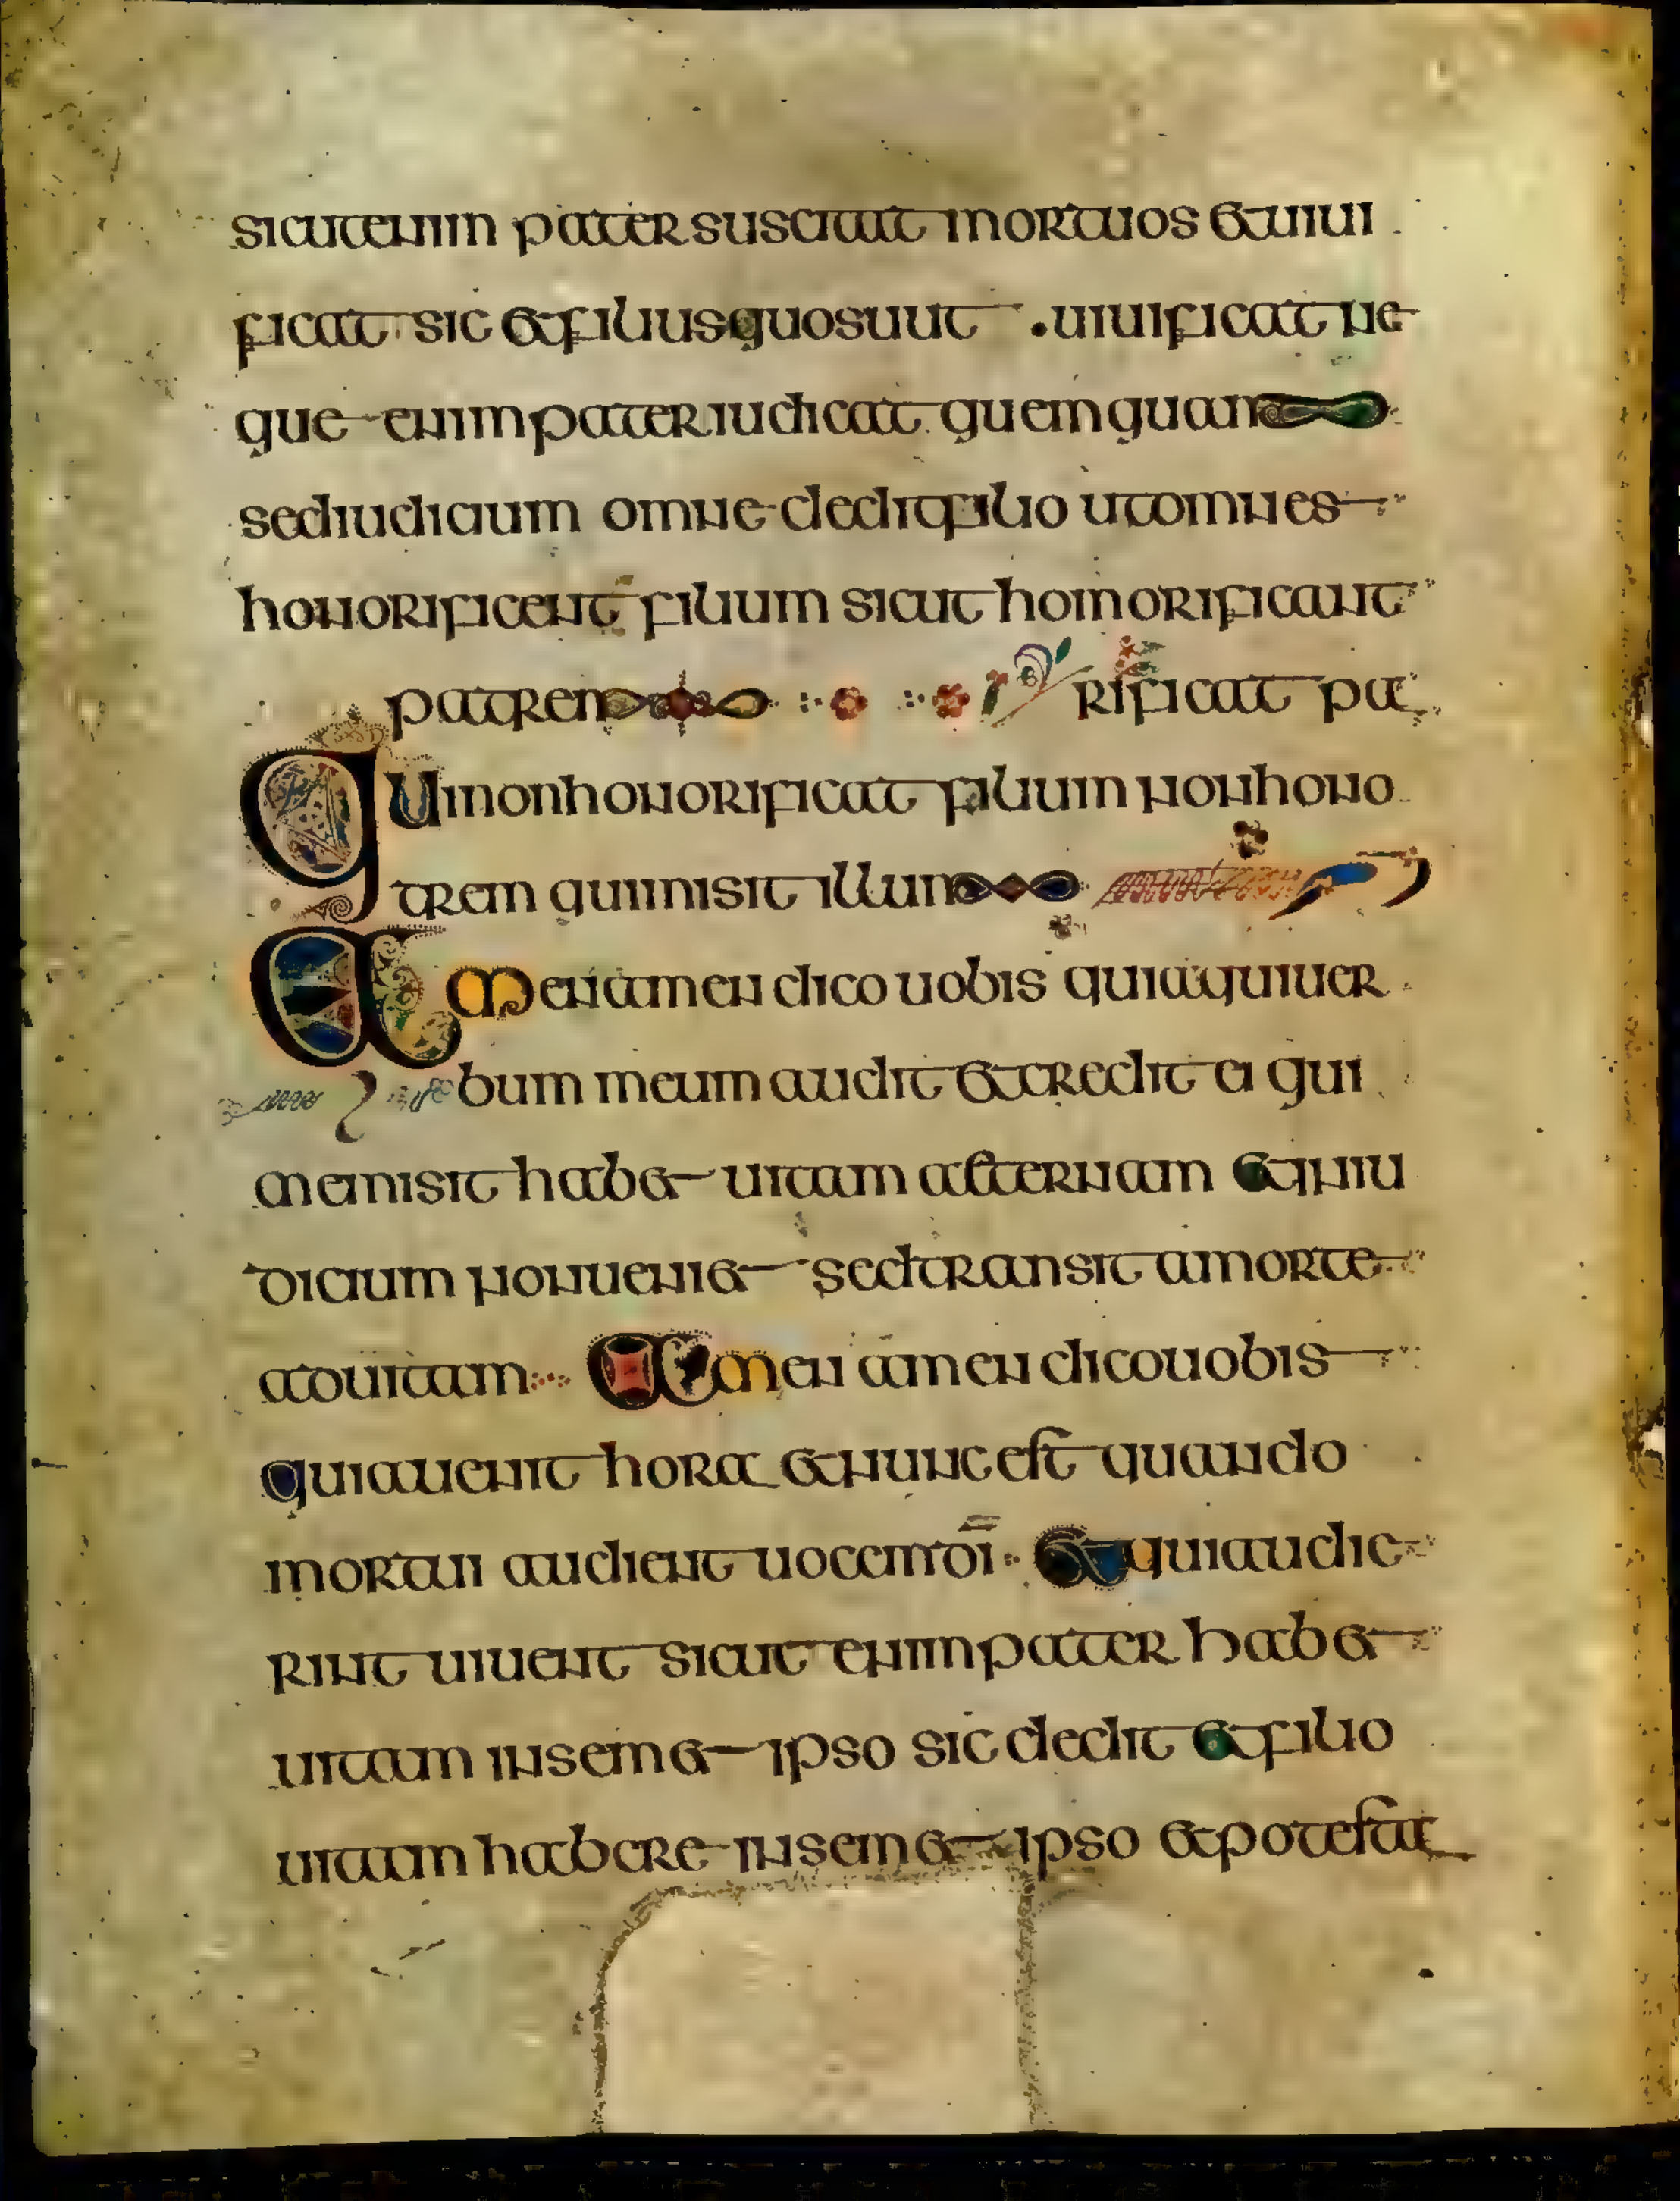 sicut enim pater suscitat mortuos & uiui
ficat sic & filius quos uult uiuificat ne
que enim pater iudicat quemquam
sed iudicium omne dedit filio ut omnes
honorificent filium sicut homorificant
patrem rificat pa
Qui non honorificat filium non hono
trem qui misit illum
Amen amen dico uobis quia qui uer
bum meum audit & credit ei qui
me misit hab& uitam aeternam & in iu
dicium non ueni& sed transit a morte
ad uitam Amen amen dico uobis
quia uenit hora & nunc est quando
mortui audient uocem di & qui audie
rint uiuent sicut enim pater hab&
uitam in sem& ipso sic dedit & filio
uitam habere in sem& ipso & potestat